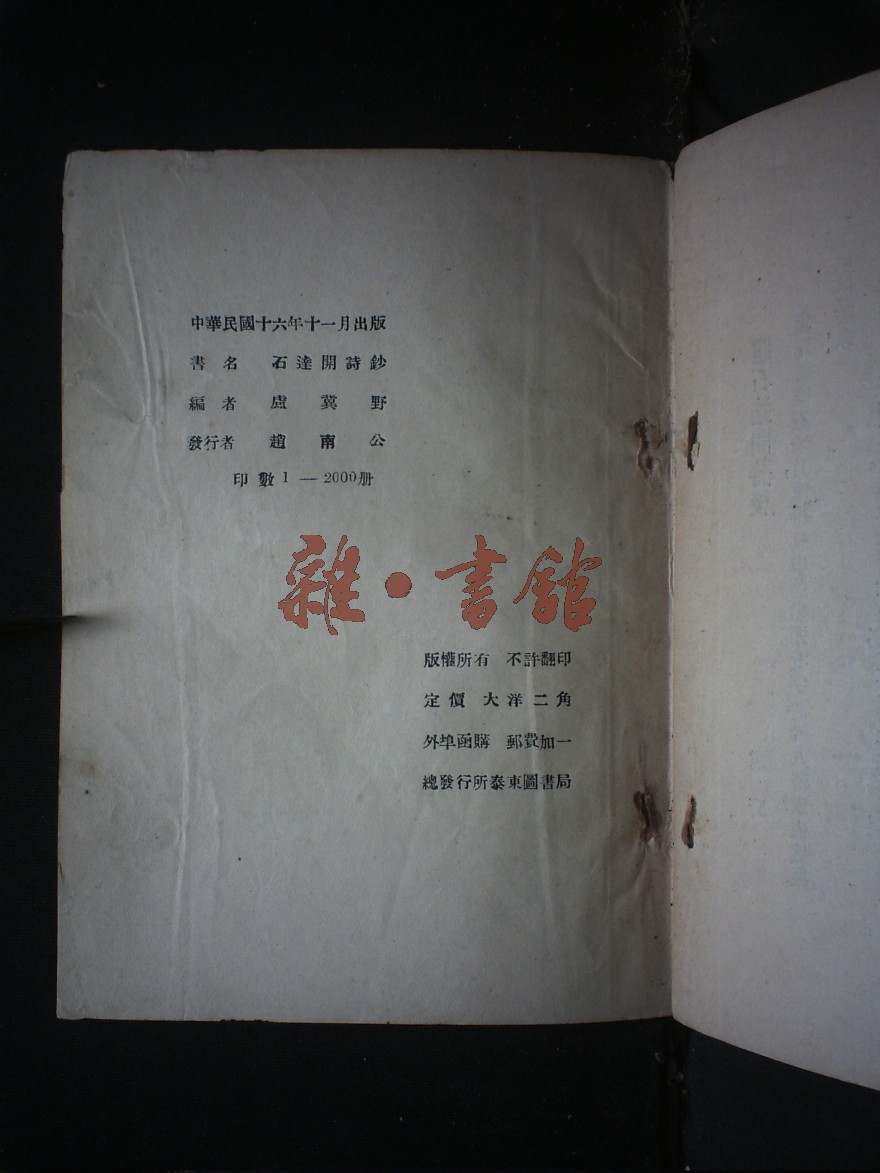 中華民國十六年十一月出版
書名 石達開詩鈔
編者 盧冀野
發行者 趙南公
印數1—2000册
雜·書館
版權所有 不許翻印
定價 大洋二角
外埠函購 郵費加一
總發行所泰東圖書局